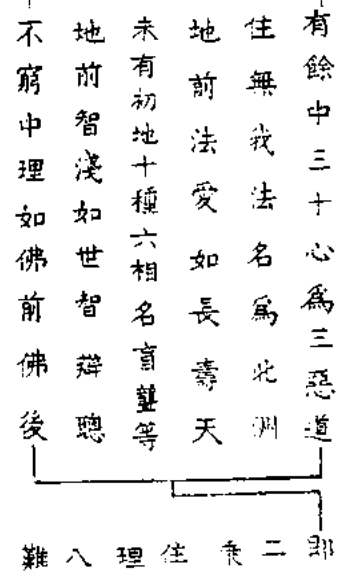 有餘中三十心為三惡道
住無我法名為北洲
地前法愛如長壽天
未有初地十種六相名盲聾等
地前智淺如世智辯聰
不窮中理如佛前佛後
即二乘住理八難